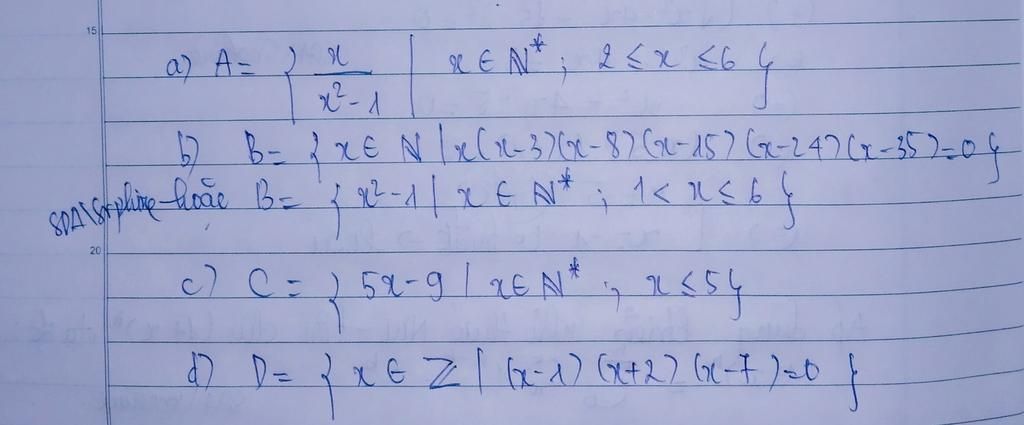 15
a) A = { x / x² - 1 | x ∈ N* ; 2 ≤ x ≤ 6 }
b) B = { x ∈ N | x(x-3)(x-8)(x-15)(x-24)(x-35)=0 }
hoặc B = { x² - 1 | x ∈ N* ; 1 < x ≤ 6 }
20
c) C = { 5x - 9 | x ∈ N* ; x ≤ 5 }
d) D = { x ∈ Z | (x-1)(x+2)(x-7)=0 }